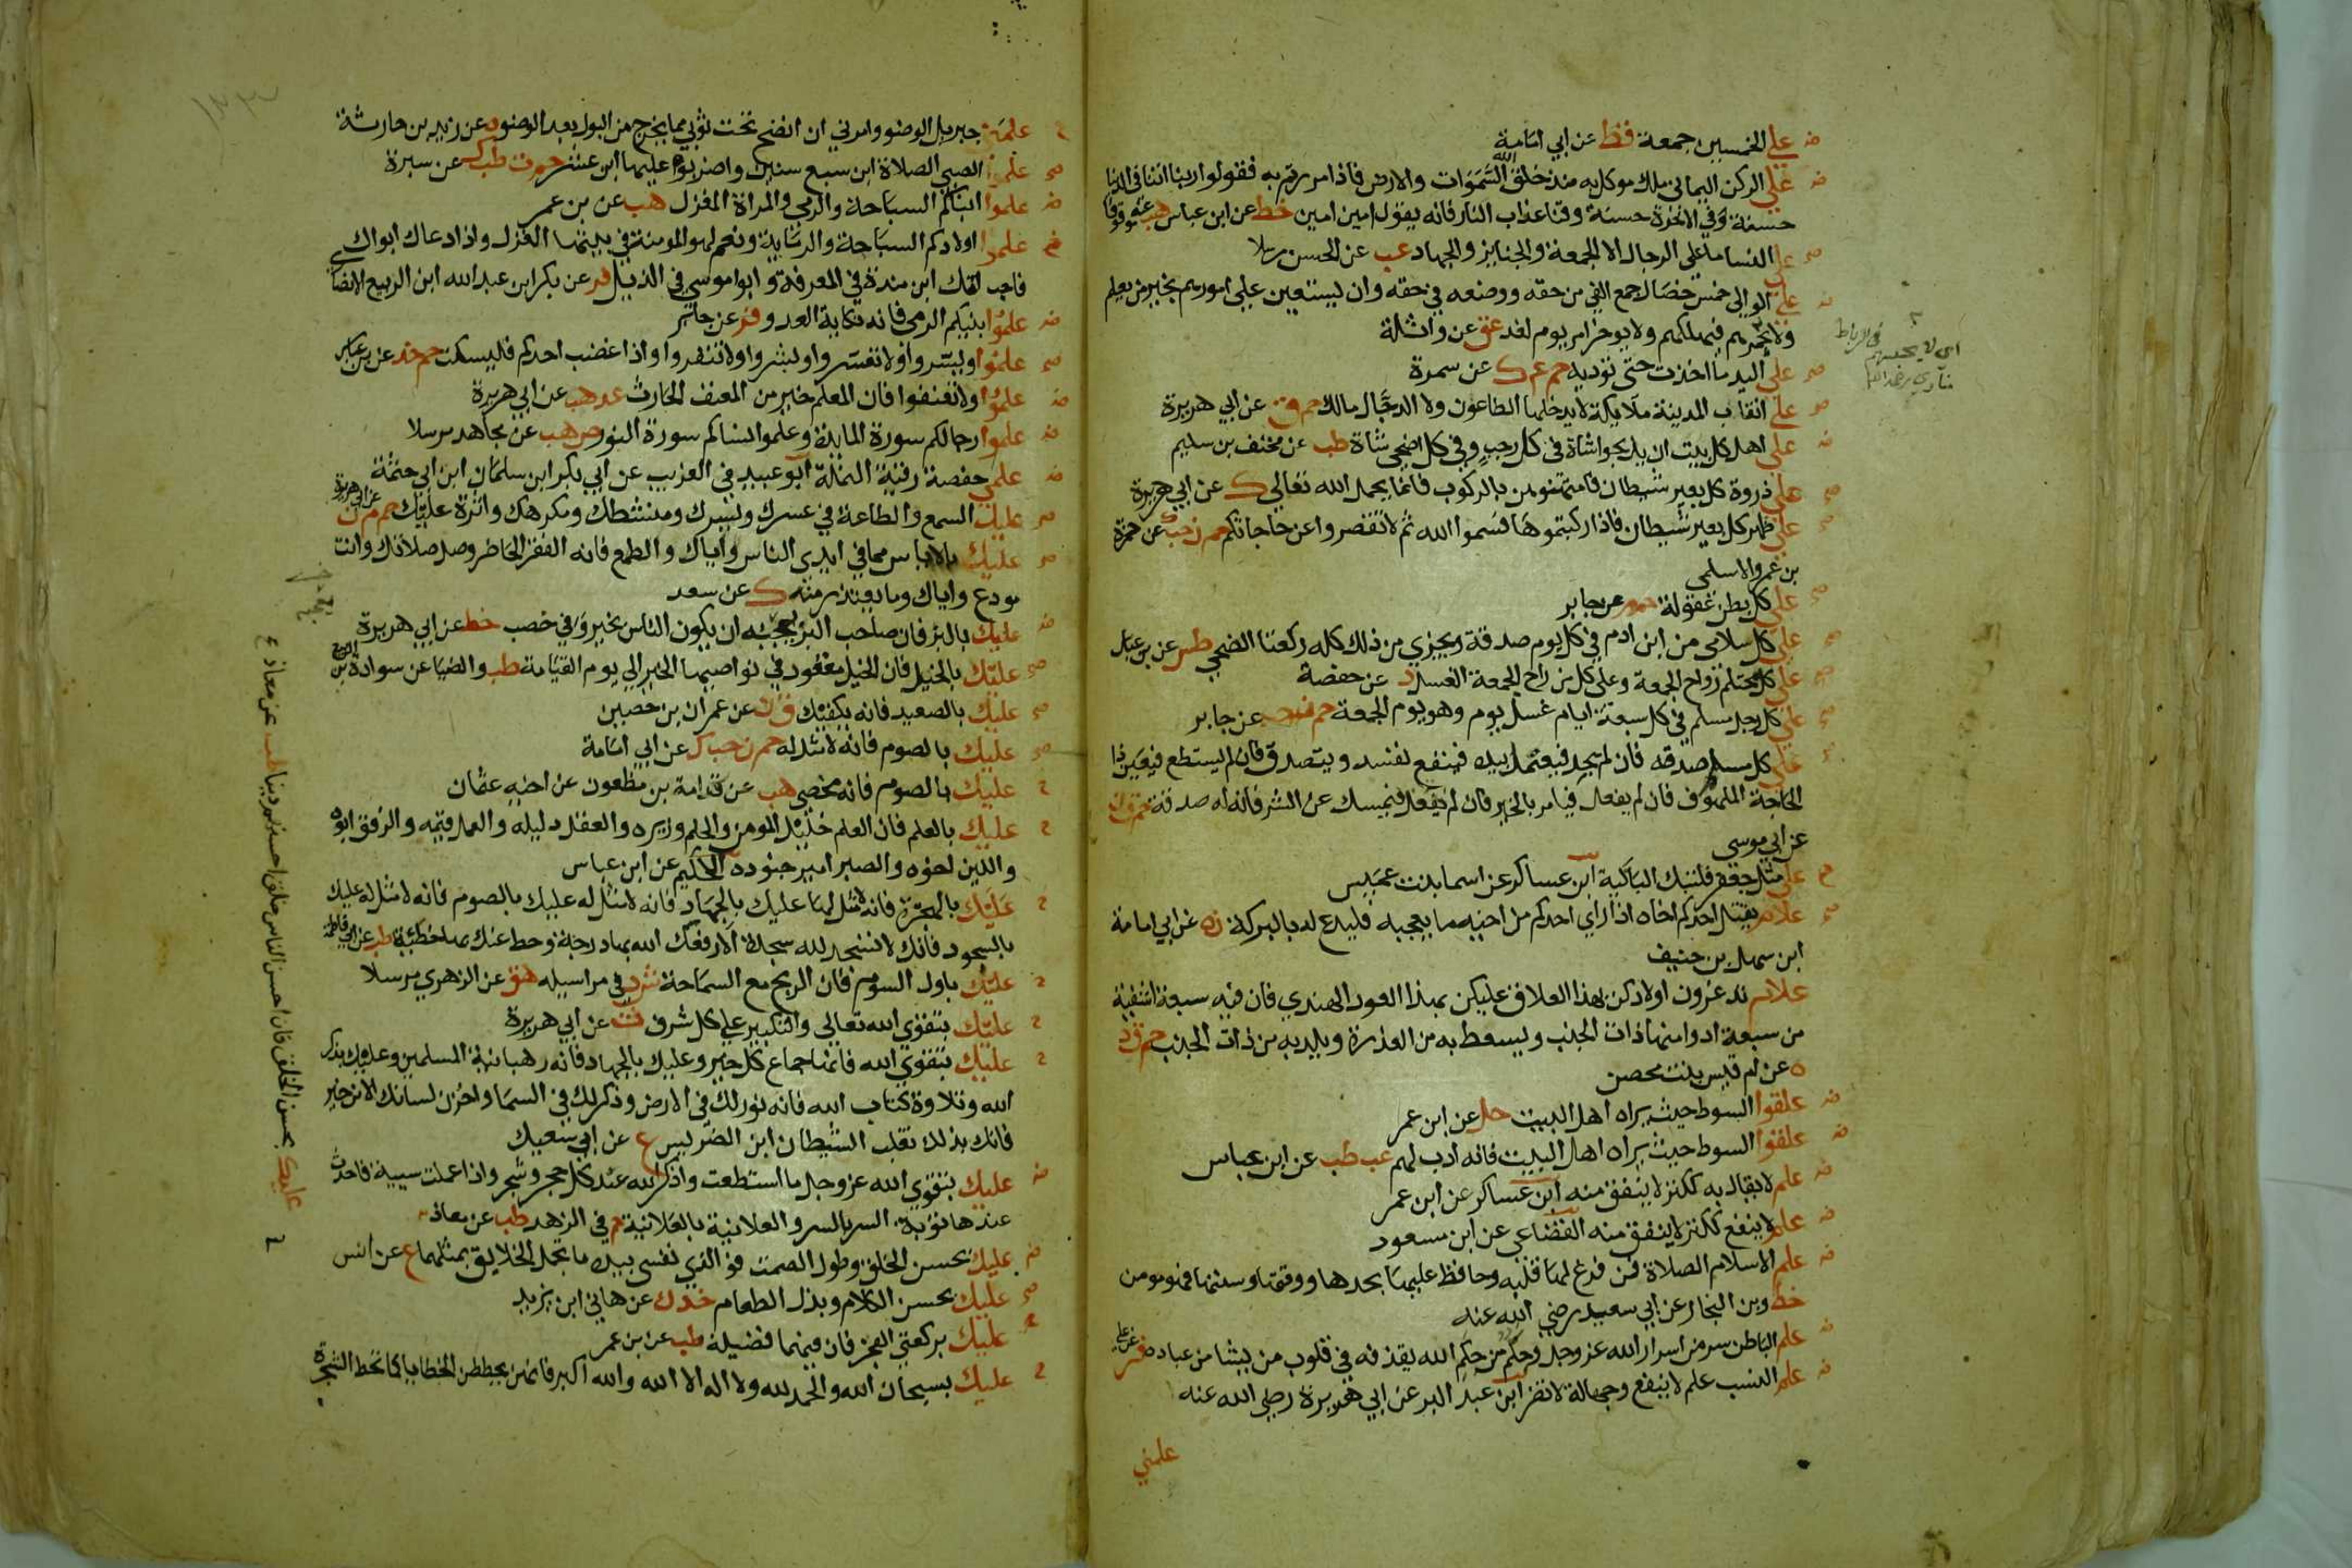 على الخمسين جمعة قط عن ابي امامة
على الركن اليماني ملك موكل به منذ خلق الله السموات والارض فاذا مررتم به فقولوا ربنا اتنا في الدنيا
حسنة وفي الاخرة حسنة وقنا عذاب النار فانه يقول امين امين خط عن ابن عباس هب عنه موقوفا
على النسا ما على الرجال الا الجمعة والجنايز والجهاد عب عن الحسن مرسلا
على الوالي خمس خصال جمع الفي من حقه ووضعه في حقه وان يستعين على امورهم بخير من يعلم
ولا يجمرهم فيهلكهم ولا يوخر امر يوم لغد عق عن واثلة
على اليد ما اخذت حتى توديه حم عه ك عن سمرة
على انقاب المدينة ملايكة لا يدخلها الطاعون ولا الدجال مالك حم ق عن ابي هريرة
على اهل كل بيت ان يذبحوا شاة في كل رجب وفي كل اضحى شاة طب عن مخنف بن سليم
على ذروة كل بعير شيطان فامتهنوهن بالركوب فانما يحمل الله تعالى ك عن ابي هريرة
على ظهر كل بعير شيطان فاذا ركبتموها فسموا الله ثم لا تقصروا عن حاجاتكم حم ن حب ك عن حمزة
بن عمرو الاسلمي
على كل بطن عقوله حم م عن جابر
على كل سلامى من ابن ادم في كل يوم صدقة ويجزي من ذلك كله ركعتا الضحى طس عن بن عباس
على كل محتلم رواح الجمعة وعلى كل من راح الجمعة الغسل د عن حفصة
على كل رجل مسلم في كل سبعة ايام غسل يوم وهو يوم الجمعة حم ن حب عن جابر
على كل مسلم صدقه فان لم يجد فيعتمل بيده فينفع نفسه ويتصدق فان لم يستطع فيعين ذا
الحاجة الملهوف فان لم يفعل فيامر بالخير فان لم يفعل فيمسك عن الشر فانه له صدقة حم ق ن
عن ابي موسى
على مثل جعفر فلتبك الباكية ابن عساكر عن اسما بنت عميس
علام يقتل احدكم اخاه اذا راي احدكم من اخيه ما يعجبه فليدع له بالبركة ن ه عن ابي امامة
ابن سهل بن حنيف
علام تدغرون اولادكن بهذا العلاق عليكن بهذا العود الهندي فان فيه سبعة اشفية
من سبعة ادوا منها ذات الجنب ويسعط به من العذرة ويلد به من ذات الجنب حم ق د
ه عن ام قيس بنت محصن
علقوا السوط حيث يراه اهل البيت حل عن ابن عمر
علقوا السوط حيث يراه اهل البيت فانه ادب لهم عب طب عن ابن عباس
علم لا يقال به ككنز لا ينفق منه ابن عساكر عن ابن عمر
علم لا ينفع ككنز لا ينفق منه القضاعي عن ابن مسعود
علم الاسلام الصلاة فمن فرغ لها قلبه وحافظ عليها بحدها ووقتها وسنتها فهو مومن
خط وبن النجار عن ابي سعيد رضي الله عنه
علم الباطن سر من اسرار الله عز وجل وحكم من حكم الله يقذفه في قلوب من يشا من عباده فر عن علي
علم النسب علم لا ينفع وجهالة لا تضر ابن عبد البر عن ابي هريرة رضي الله عنه
علمني
علمني جبريل الوضوو وامرني ان انضح تحت ثوبي مما يخرج من البول بعد الوضو ه عن زيد بن حارثة
علموا الصبي الصلاة ابن سبع سنين واضربوه عليها ابن عشر حم ت طب ك عن سبرة
علموا ابناكم السباحة والرمي والمراة المغزل هب عن بن عمر
علموا اولادكم السباحة والرماية ونعم لهو المومنة في بيتها الغزل واذا دعاك ابواك
فاجب امك ابن مندة في المعرفة وابو موسى في الذيل فر عن بكر ابن عبد الله ابن الربيع الانصا
علموا بنيكم الرمي فانه نكاية العدو فر عن جابر
علموا ويسروا ولا تعسروا وبشروا ولا تنفروا واذا غضب احدكم فليسكت حم خد عن بن عباس
علموا ولا تعنفوا فان المعلم خير من المعنف الحارث عد هب عن ابي هريرة
علموا رجالكم سورة المايدة وعلموا نساكم سورة النور ص هب عن مجاهد مرسلا
علمي حفصة رقية النملة ابو عبيد في الغريب عن ابي بكر ابن سلمان ابن ابي حثمة
عليك السمع والطاعة في عسرك ويسرك ومنشطك ومكرهك واثرة عليك حم م ن عن ابي هريرة
عليك بالاياس مما في ايدي الناس واياك والطمع فانه الفقر الحاضر وصل صلاتك وانت
مودع واياك وما يعتذر منه ك عن سعد
عليك بالبز فان صاحب البز يعجبه ان يكون الناس بخير وفي خصب خط عن ابي هريرة
عليك بالخيل فان الخيل معقود في نواصيها الخير الي يوم القيامة طب والضيا عن سوادة بن الربيع
عليك بالصعيد فانه يكفيك ق ن عن عمران بن حصين
عليك بالصوم فانه لا مثل له حم ن حب ك عن ابي امامة
عليك بالصوم فانه مخصي هب عن قدامة بن مظعون عن اخيه عثمان
عليك بالعلم فان العلم خليل المومن والحلم وزيره والعقل دليله والعمل قيمه والرفق ابوه
واللين اخوه والصبر امير جنوده الحكيم عن ابن عباس
عليك بالهجرة فانه لا مثل لها عليك بالجهاد فانه لا مثل له عليك بالصوم فانه لا مثل له عليك
بالسجود فانك لا تسجد لله سجدة الا رفعك الله بها درجة وحط عنك بها خطيئة طب عن ابي فاطمة
عليك باول السوم فان الربح مع السماحة ش د في مراسيله هق عن الزهري مرسلا
عليك بتقوى الله تعالى والتكبير على كل شرف ت عن ابي هريرة
عليك بتقوى الله فانها جماع كل خير وعليك بالجهاد فانه رهبانية المسلمين وعليك بذكر
الله وتلاوة كتاب الله فانه نور لك في الارض وذكر لك في السما واخزن لسانك الا من خير
فانك بذلك تغلب الشيطان ابن الضريس ع عن ابي سعيد
عليك بتقوى الله عز وجل ما استطعت واذكر الله عند كل حجر وشجر واذا عملت سيية فاحدث
عندها توبة السر بالسر والعلانية بالعلانية حم في الزهد طب عن معاذ
عليك بحسن الخلق وطول الصمت فو الذي نفسي بيده ما تجمل الخلايق بمثلهما ع عن انس
عليك بحسن الكلام وبذل الطعام خد ك عن هاني ابن يزيد
عليك بركعتي الفجر فان فيهما فضيلة طب عن بن عمر
عليك بسبحان الله والحمد لله ولا اله الا الله والله اكبر فانهن يحططن الخطايا كما تحط الشجرة
عليك بحسن الخلق فان احسن الناس خلقا احسنهم دينا طب عن معاذ